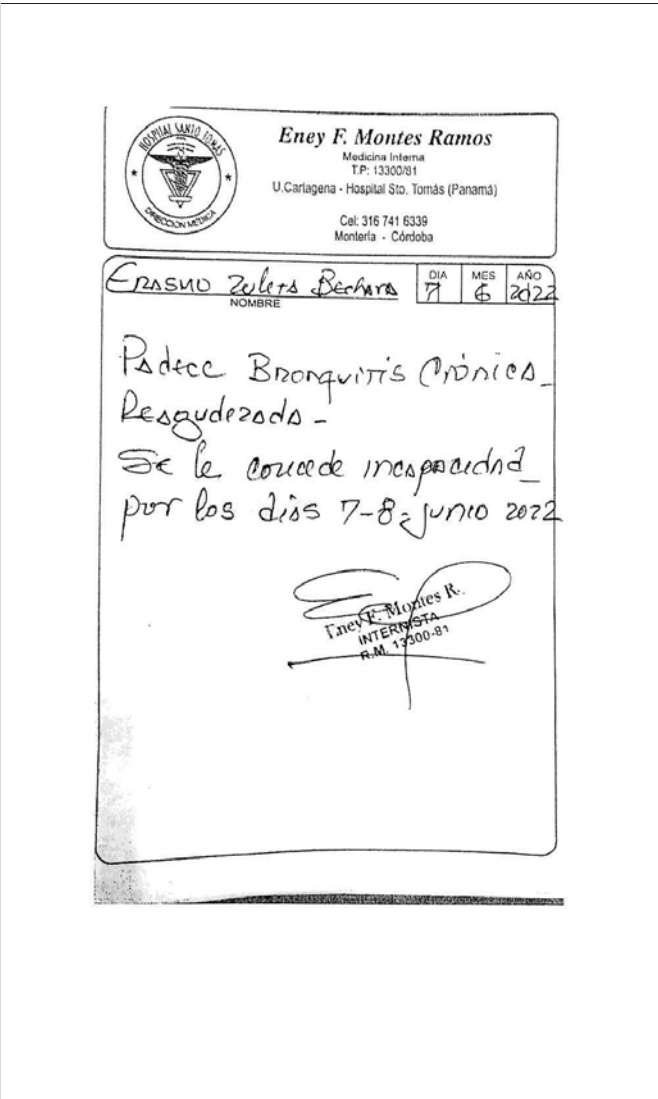 HOSPITAL SANTO TOMAS
DIRECCION MEDICA
Eney F. Montes Ramos
Medicina Interna
T.P: 13300/81
U.Cartagena - Hospital Sto. Tomás (Panamá)
Cel: 316 741 6339
Montería - Córdoba
Erasmo Zuleta Bechara
NOMBRE
DIA MES AÑO
7 6 2022
Padece Bronquitis Crónica
Reagudezada -
Se le concede incapacidad
por los dias 7-8- junio 2022
Eney F. Montes R.
INTERNISTA
R.M. 13300-81